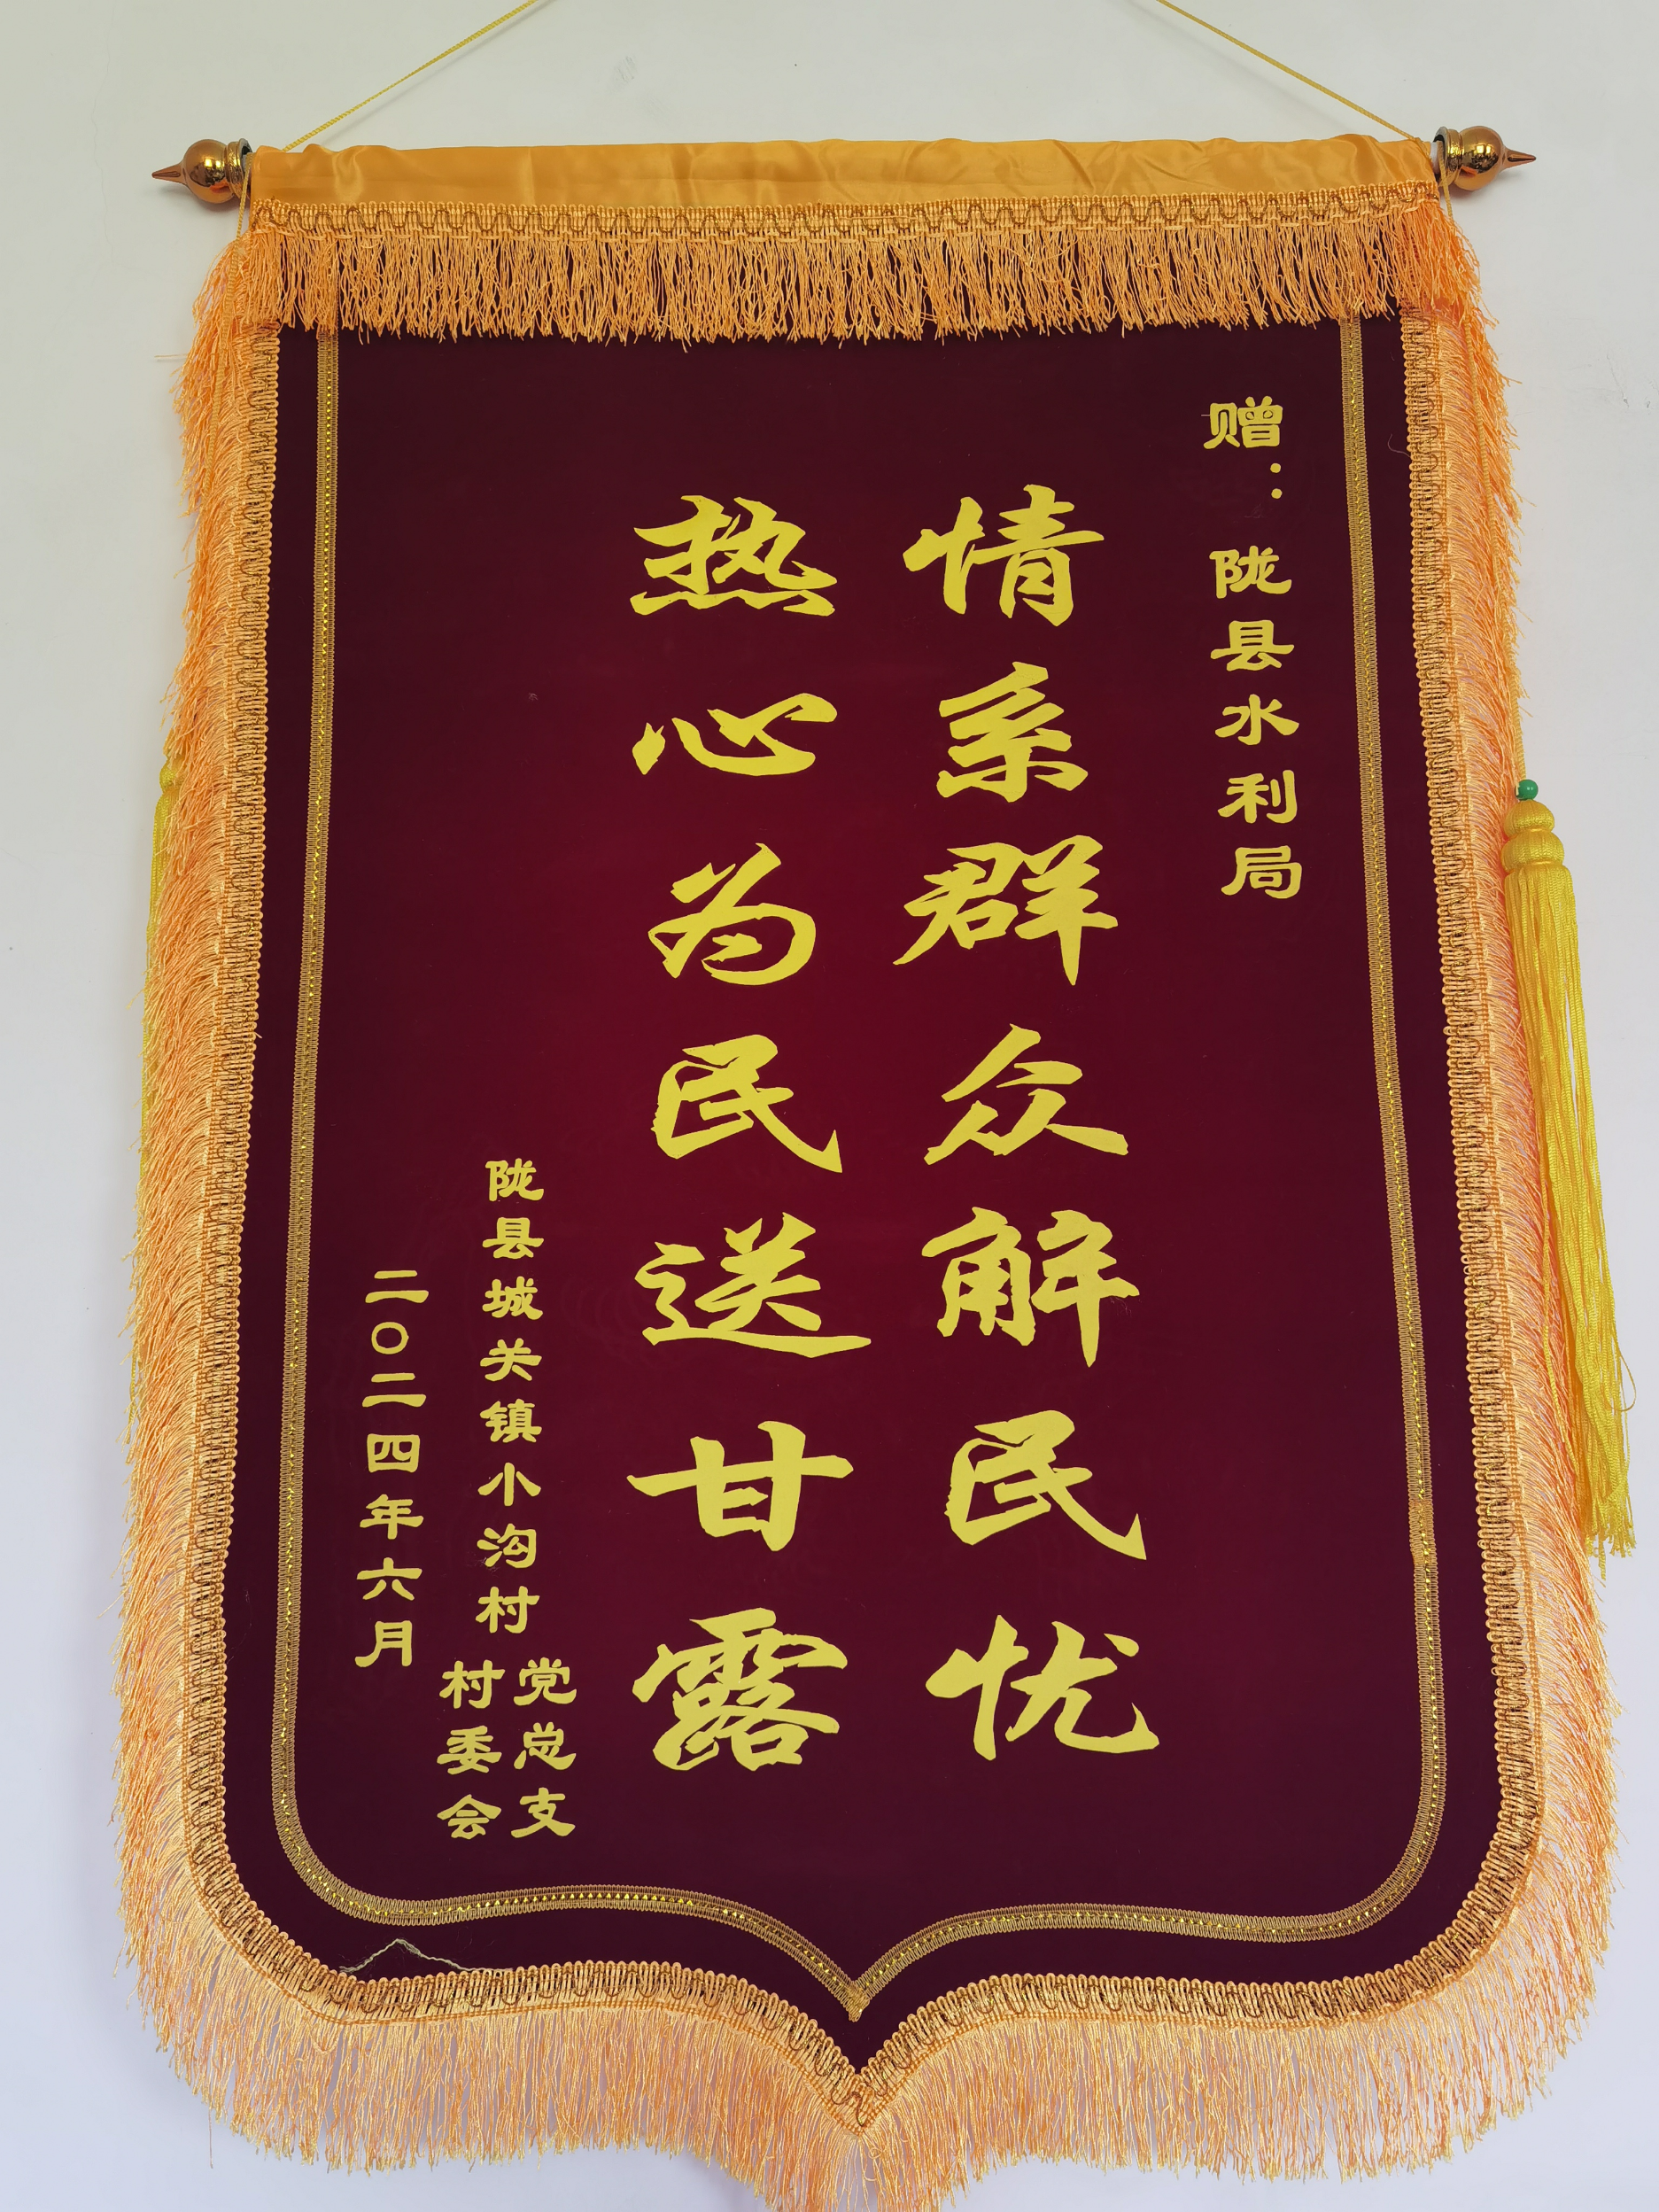 赠：陇县水利局
情系群众解民忧
热心为民送甘露
陇县城关镇小沟村
党总支
村委会
二〇二四年六月